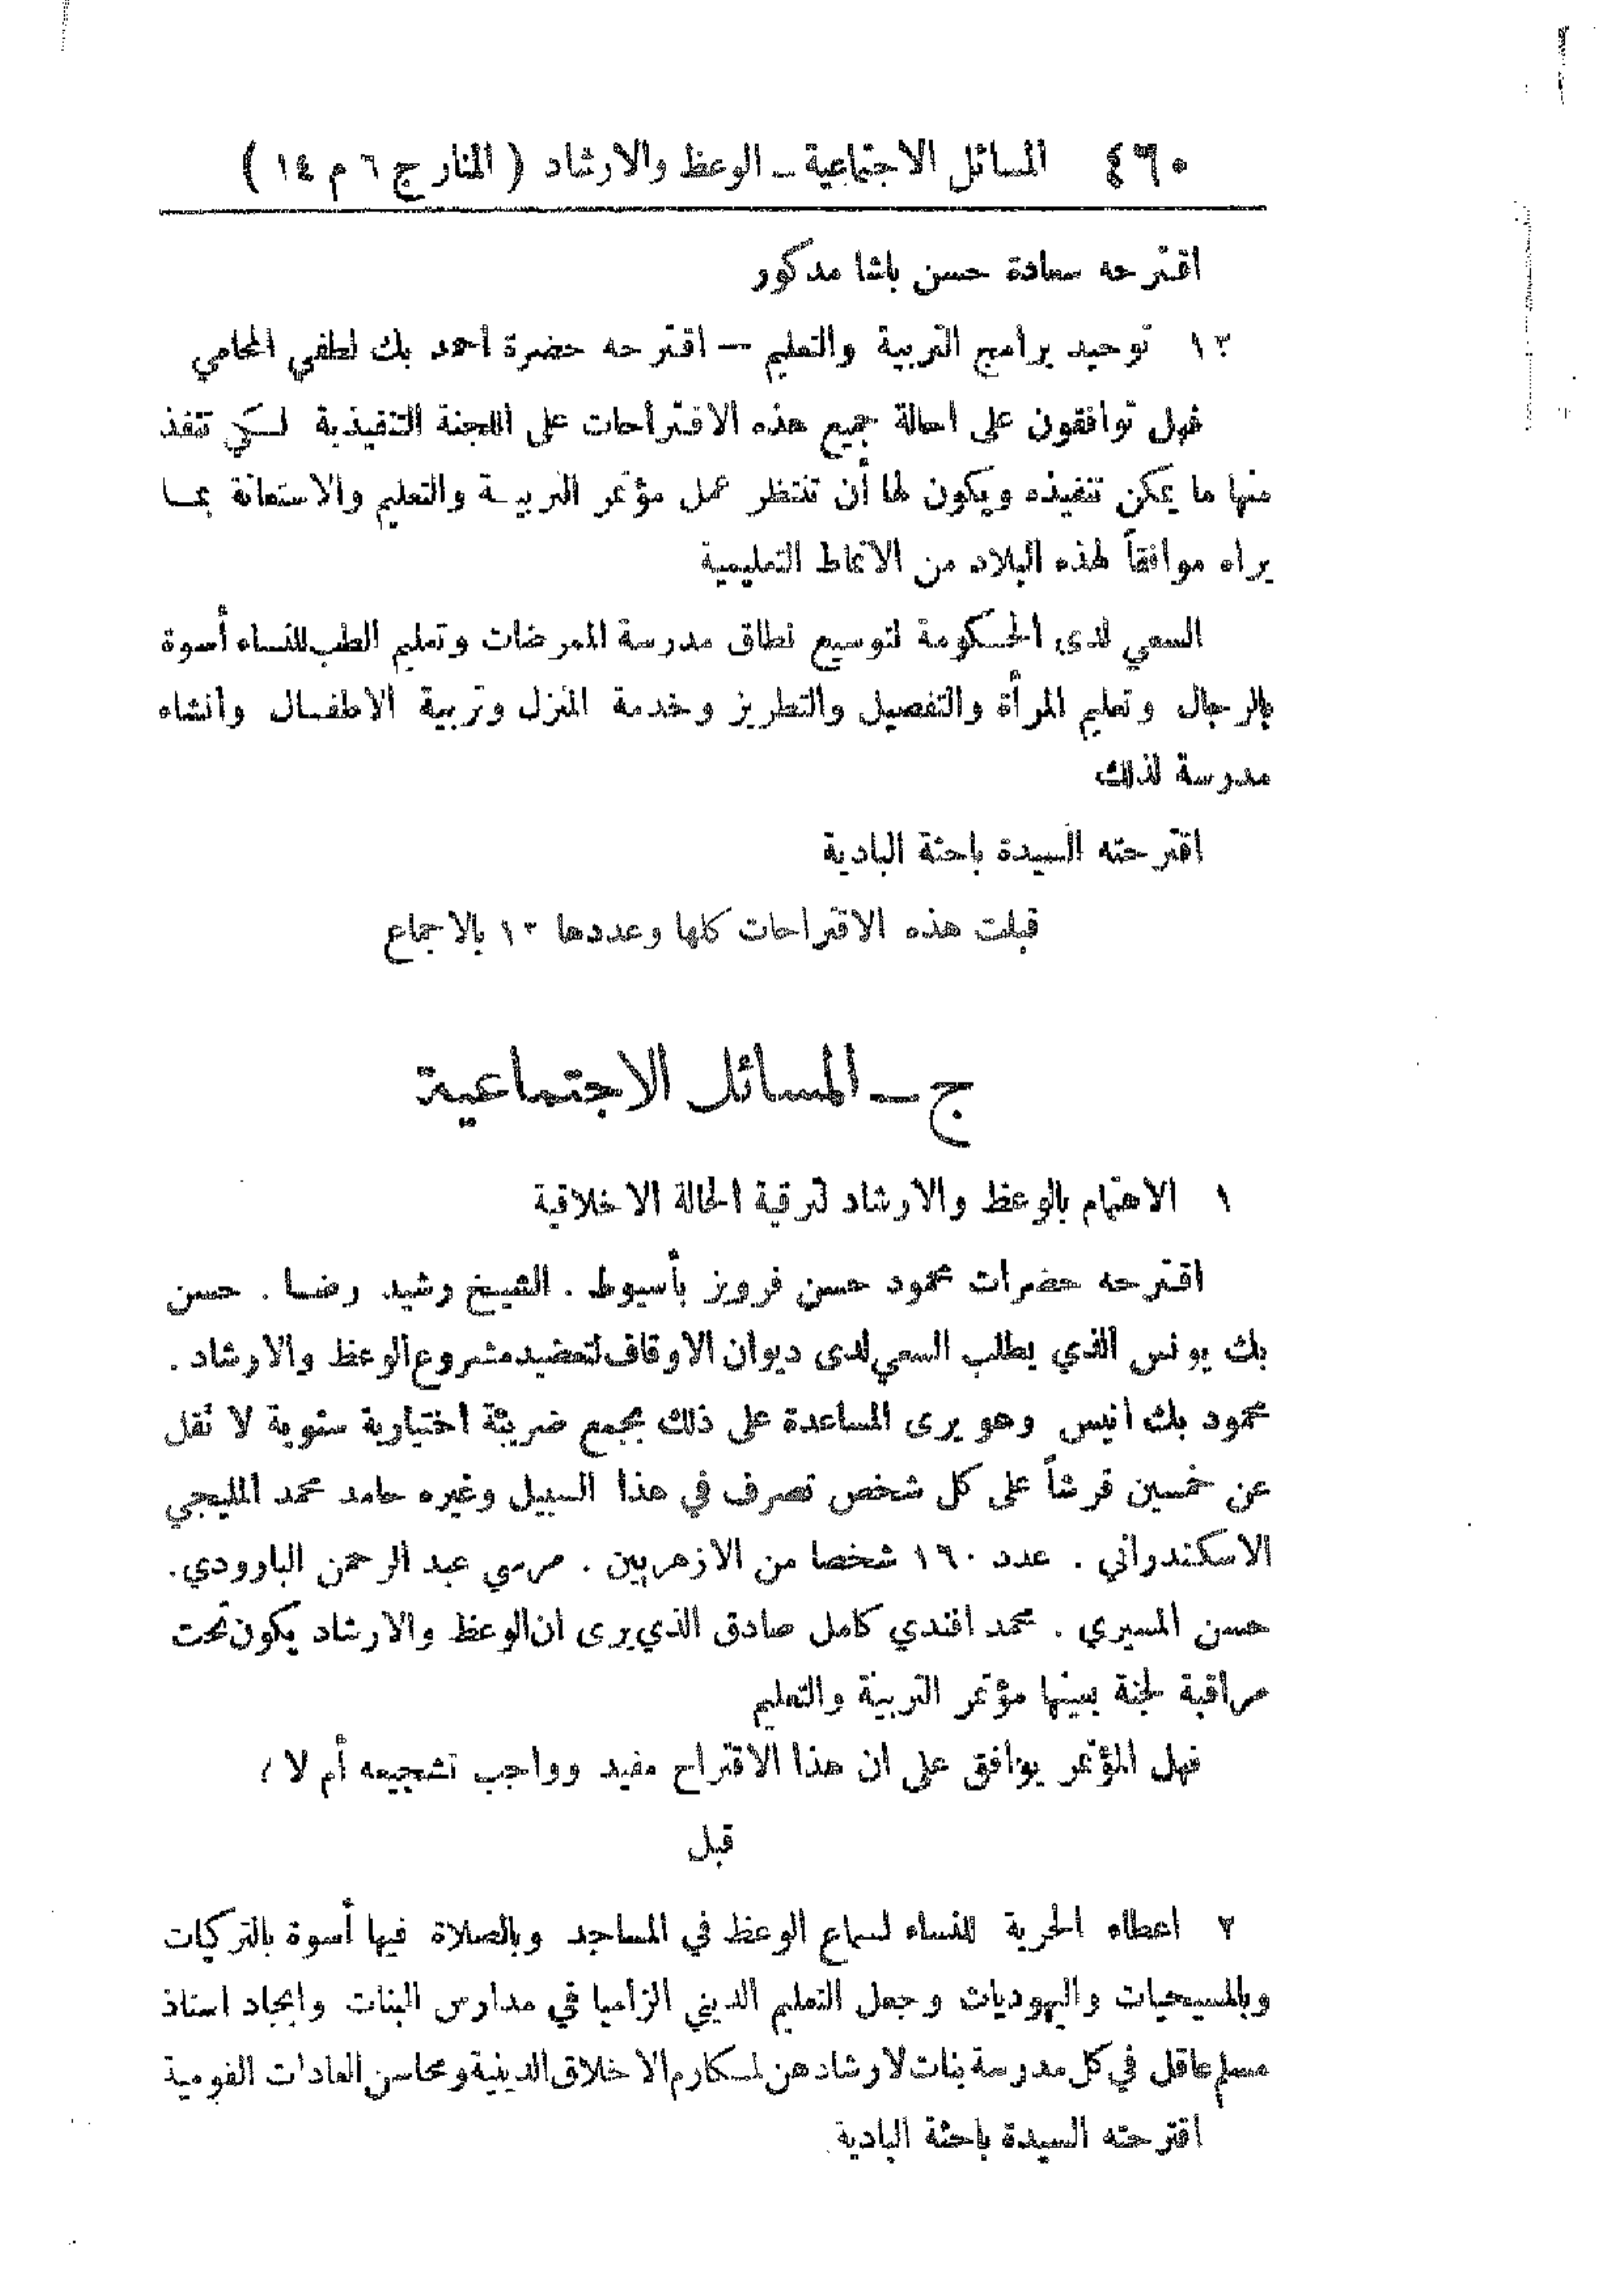 ٤٦٠ المسائل الاجتماعية ــ الوعظ والارشاد ( المنار ج ٦ م ١٤ )
اقترحه سعادة حسن باشا مدكور
١٣ توحيد برامج التربية والتعليم — اقترحه حضرة احمد بك لطفي المحامي
فهل توافقون على احالة جميع هذه الاقتراحات على اللجنة التنفيذية لكي تنفذ
منها ما يمكن تنفيذه ويكون لها أن تنتظر عمل مؤتمر التربيـة والتعليم والاستعانة بمـا
يراه موافقاً لهذه البلاد من الانماط التعليمية
السعي لدى الحكومة لتوسيع نطاق مدرسة الممرضات وتعليم الطب للنساء أسوة
بالرجال وتعليم المرأة والتفصيل والتطريز وخدمة المنزل وتربية الاطفـال وانشاء
مدرسة لذلك
اقترحته السيدة باحثة البادية
قبلت هذه الاقتراحات كلها وعددها ١٣ بالاجماع
ج ــ المسائل الاجتماعية
١ الاهتمام بالوعظ والارشاد لترقية الحالة الاخلاقية
اقترحه حضرات محمود حسن فروز بأسيوط . الشيخ رشيد رضـا . حسن
بك يونس الذي يطلب السعي لدى ديوان الاوقاف لتعضيد مشروع الوعظ والارشاد .
محمود بك انيس وهو يرى المساعدة على ذلك بجمع ضريبة اختيارية سنوية لا تقل
عن خمسين قرشاً على كل شخص تصرف في هذا السبيل وغيره حامد محمد المليجي
الاسكندراني . عدد ١٦٠ شخصا من الازهريين . مرسي عبد الرحمن البارودي .
حسن المسيري . محمد افندي كامل صادق الذي يرى ان الوعظ والارشاد يكون تحت
مراقبة لجنة يعينها مؤتمر التربية والتعليم
فهل المؤتمر يوافق على ان هذا الاقتراح مفيد وواجب تشجيعه أم لا ؟
قبل
٢ اعطاء الحرية للنساء لسماع الوعظ في المساجد وبالصلاة فيها أسوة بالتركيات
وبالمسيحيات واليهوديات وجعل التعليم الديني الزاميا في مدارس البنات وايجاد استاذ
مسلم عاقل في كل مدرسة بنات لارشادهن لمكارم الاخلاق الدينية ومحاسن العادات القومية
اقترحته السيدة باحثة البادية